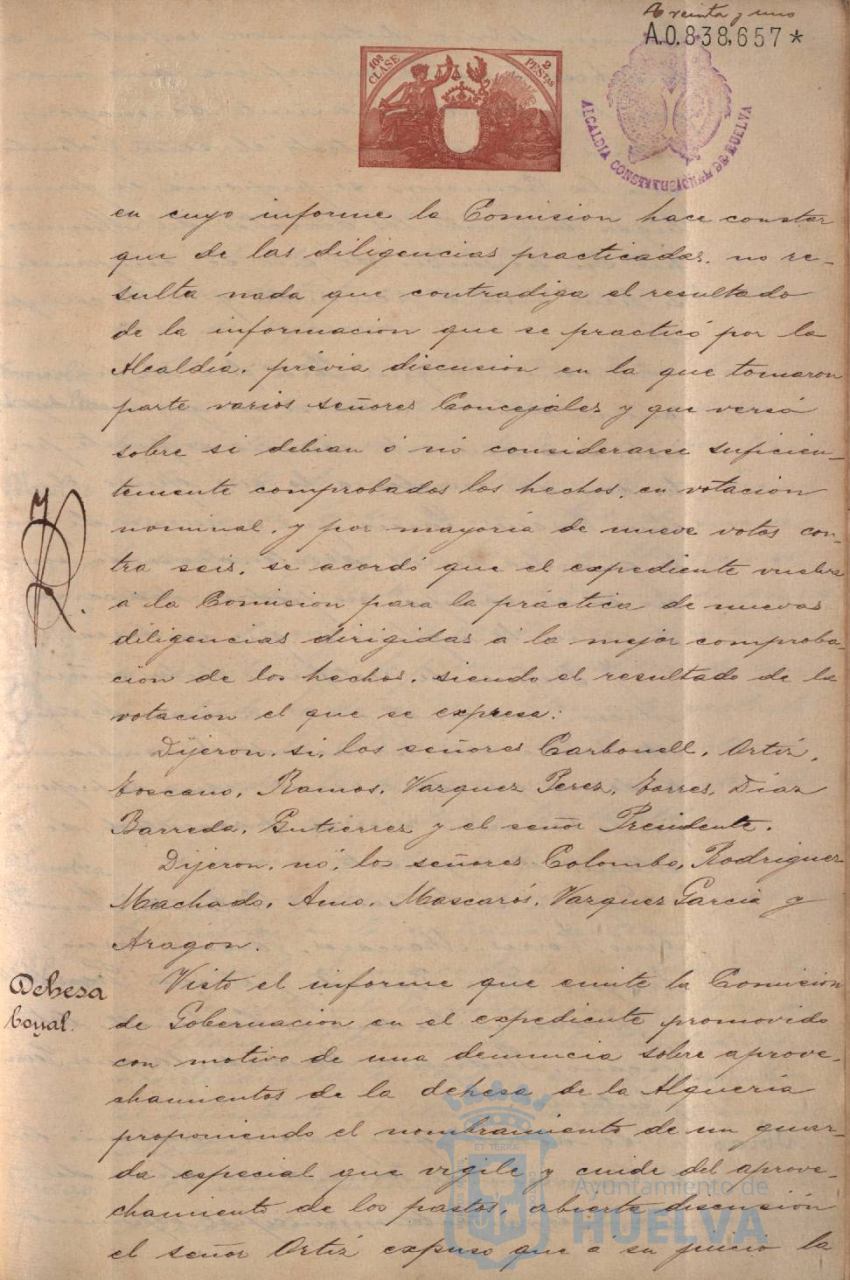 treinta y uno
A.0.838,657*
10ª CLASE
2 PESTAS
ALCALDIA CONSTITUCIONAL DE HUELVA
en cuyo informe la Comision hace constar
que de las diligencias practicadas, no re-
sulta nada que contradiga el resultado
de la informacion que se practicó por la
Alcaldía, prévia discusion en la que tomaron
parte varios señores Concejales y que versó
sobre si debian ó nó considerarse suficien-
temente comprobados los hechos, en votacion
nominal, y por mayoria de nueve votos con-
tra seis, se acordó que el expediente vuelva
á la Comision para la práctica de nuevas
diligencias dirigidas á la mejor comproba-
cion de los hechos, siendo el resultado de la
votacion el que se expresa:
Dijeron, si, los señores Carbonell, Ortiz,
Toscano, Ramos, Vazquez Perez, Torres, Diaz
Barreda, Gutierrez y el señor Presidente.
Dijeron, nó, los señores Colombo, Rodriguez
Machado, Amo, Mascarós, Vazquez Garcia y
Aragón.
Dehesa
boyal.
Visto el informe que emite la Comision
de Gobernacion en el expediente promovido
con motivo de una denuncia sobre aprove-
chamientos de la dehesa de la Alqueria
proponiendo el nombramiento de un guar-
da especial que vigile y cuide del aprove-
chamiento de los pastos, abierta discusion
el señor Ortiz expuso que á su juicio la
Ayuntamiento de
HUELVA